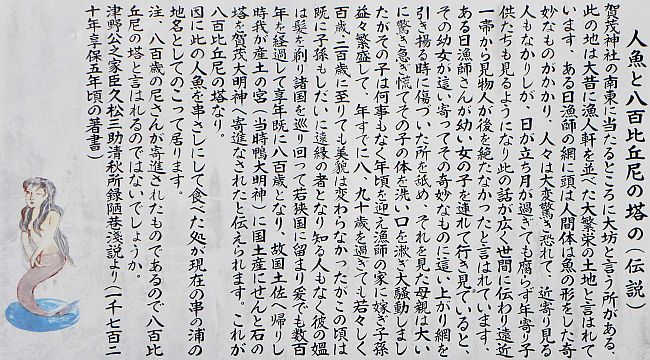 人魚と八百比丘尼の塔の（伝説）
賀茂神社の南東に当たるところに大坊と言う所がある
此の地は大昔に漁人軒を並べた大繁栄の土地と言われて
います。ある日漁師の網に頭は人間体は魚の形をした奇
妙なものがかかり、人々は大変驚き恐れて、近寄り見る
人もなかりしが、日が立ち月が過ぎても腐らず年寄り子
供たちも見るようになり此の話が広く世間に伝わり遠近
一帯から見物人が後を絶たなかったと言われています。
ある日漁師さんが幼い女の子を連れて行き見ていると、
その幼女が這い寄ってその奇妙なものに這い上がり網を
引き揚る時に傷ついた所を舐め、それを見た母親は大い
に驚き急ぎ慌てその子の体を洗い口を漱ぎ大騒動しまし
たがその子は何事もなく年頃を迎え漁師の家に嫁ぎ子孫
益々繁盛して、年すでに八、九十歳を過ぎても若々しく
百歳、二百歳に至りても美貌は変わらなかったがこの頃は
既に子孫もしだいに遠縁の者となり知る人もなく彼の媼
は髪を剃り諸国を巡り回って若狭国に留まり爰でも数百
年を経過して享年既に八百歳となり、故国土佐へ帰りし
時我が産土の宮（当時鴨大明神）に国土産にせんと石の
塔を賀茂大明神へ寄進なされたと伝えられます。これが
八百比丘尼の塔なり。
因に此の人魚を串さしにして食べた処が現在の串の浦の
地名としてのこって居ります。
注、八百歳の尼さんが寄進されたものであるので八百比
丘尼の塔と言はれるのではないでしょうか。
津野公之家臣久松三助清秋所録陋巷浅説より（一千七百二
十年享保五年頃の著書）